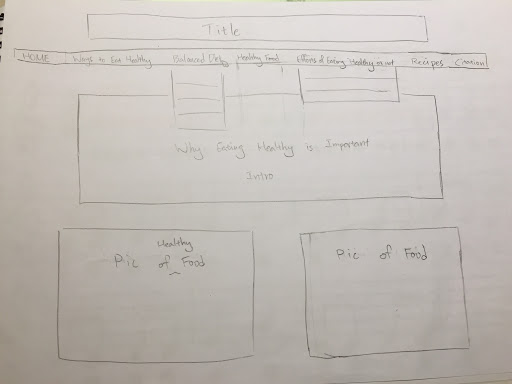 Title
HOME Ways to Eat Healthy Balanced Diet Healthy Food Effects of Eating Healthy or not Recipes Citation
Why Eating Healthy is Important
Intro
Healthy
Pic of Food
Pic of Food